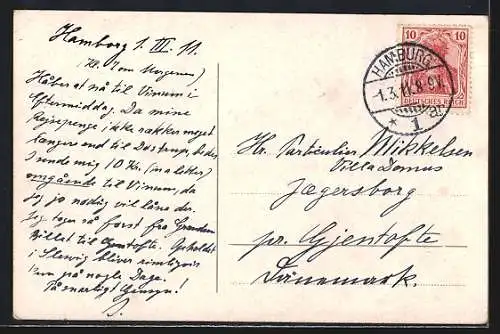 Hamborg 1. III. 11.
(Kl. 7 om Morgenen)
Håber at nå til Vinum i
Eftermiddag. Da mine
Rejsepenge ikke rækker meget
længere end til Dostrup, bedes
I sende mig 10 Kr. (ma letter)
omgående til Vinum, da
jeg jo nødig vil låne der.
Jeg tager så først fra Grænsen
Billet til Gentofte. Opholdet
i Slesvig bliver rimeligvis
kun på nogle Dage.
På snarligt Gensyn!
J.
10 10
DEUTSCHES REICH
HAMBURG
1.3.11. 8-9V.
* 1
Hr. Particulier Mikkelsen
Villa Domus
Jægersborg
pr. Gjentofte
Dänemark.